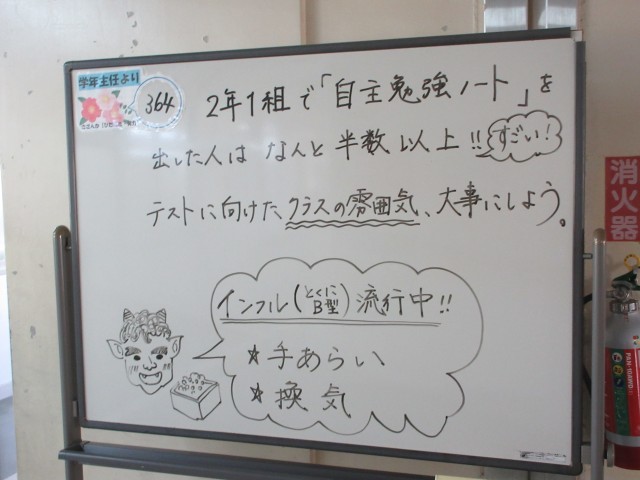 学年主任より
364
2年1組で「自主勉強ノート」を
出した人は なんと 半数以上!!
すごい!
テストに向けたクラスの雰囲気、大事にしよう。
インフル(とくにB型)流行中!!
☆手あらい
☆換気
消火器